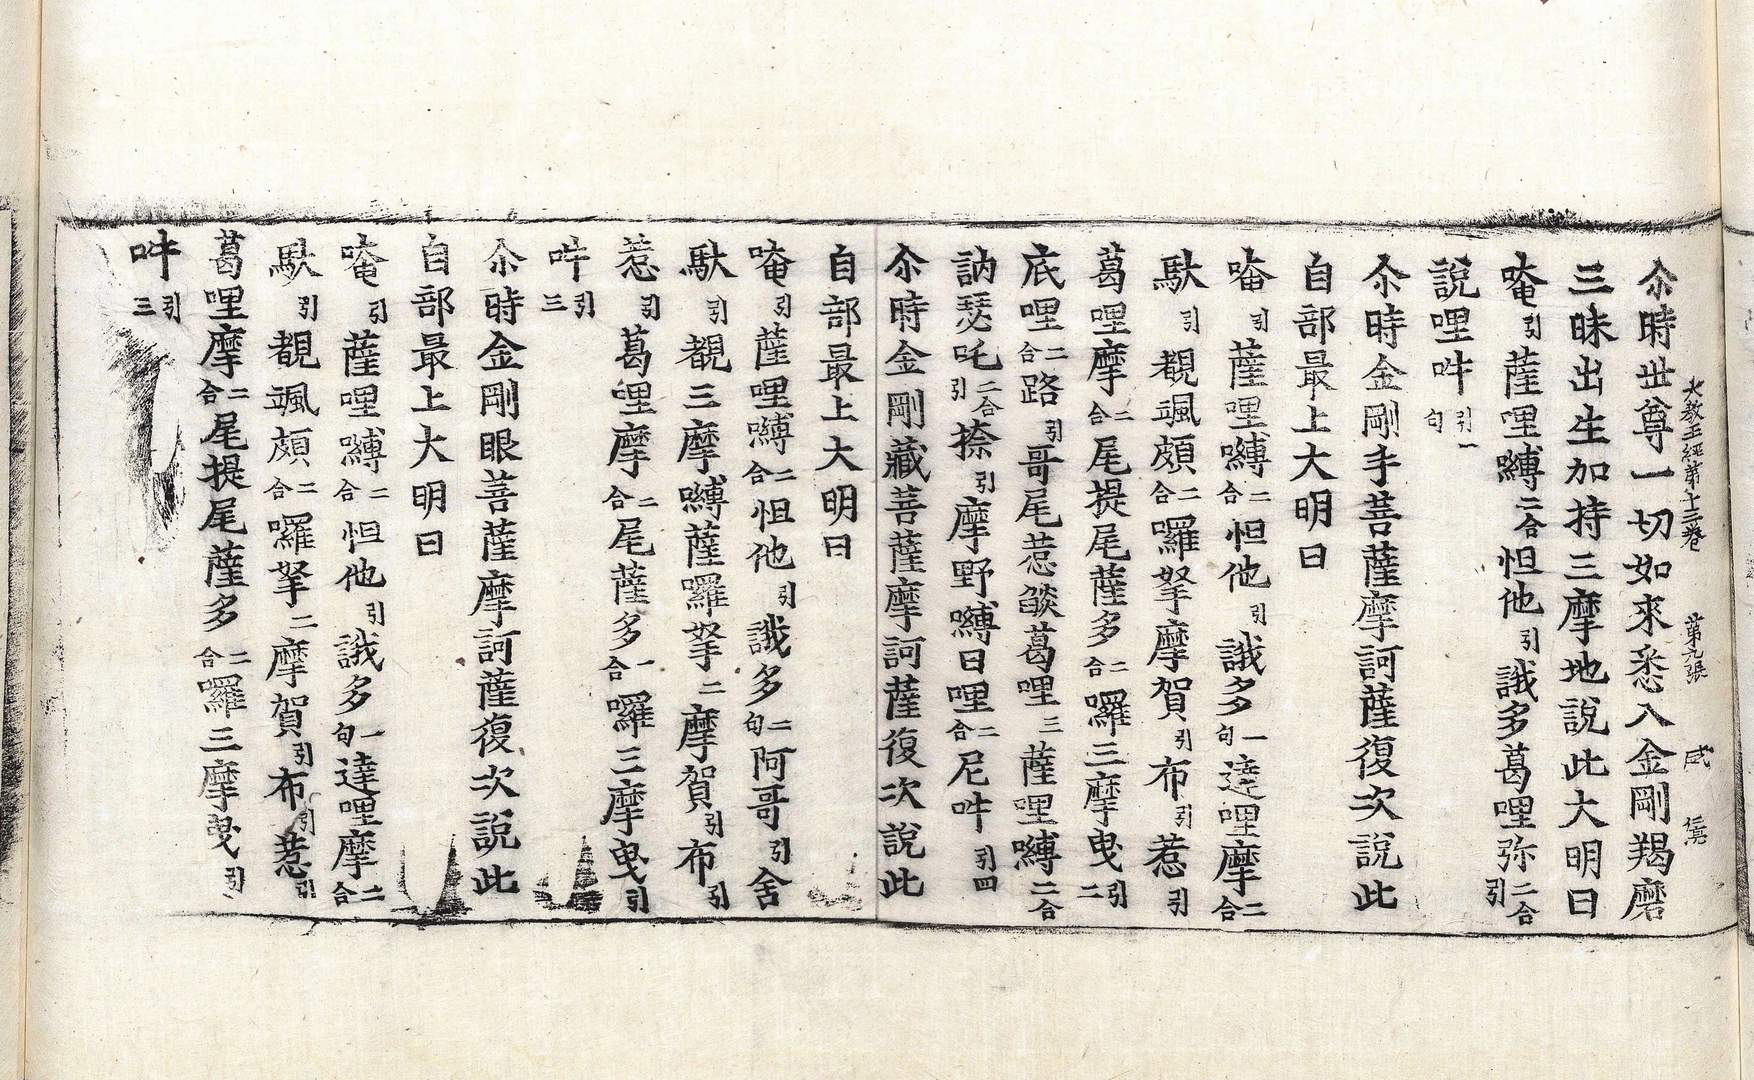 大教王經第十三卷 第九張 咸
尒時世尊一切如來悉入金剛羯磨
三昧出生加持三摩地說此大明曰
唵引薩哩嚩二合怛他引誐多葛哩弥二合引
說哩吽引一句
尒時金剛手菩薩摩訶薩復次說此
自部最上大明曰
唵引薩哩嚩二合怛他引誐多一句達哩摩二合
馱引覩颯頗二合囉拏摩賀引布引惹引
葛哩摩二合尾提尾薩多二合囉三摩曳引二
底哩二合路引哥尾惹燄葛哩三薩哩嚩二合
訥瑟吒二合引捺引摩野嚩日哩二合尼吽引四
尒時金剛藏菩薩摩訶薩復次說此
自部最上大明曰
唵引薩哩嚩二合怛他引誐多二句阿哥引舍
馱引覩三摩嚩薩囉拏二摩賀引布引
惹引葛哩摩二合尾薩多一合囉三摩曳引
吽引三
尒時金剛眼菩薩摩訶薩復次說此
自部最上大明曰
唵引薩哩嚩二合怛他引誐多一句達哩摩二合
馱引覩颯頗二合囉拏二摩賀引布引惹引
葛哩摩二合尾提尾薩多二合囉三摩曳引
吽引三